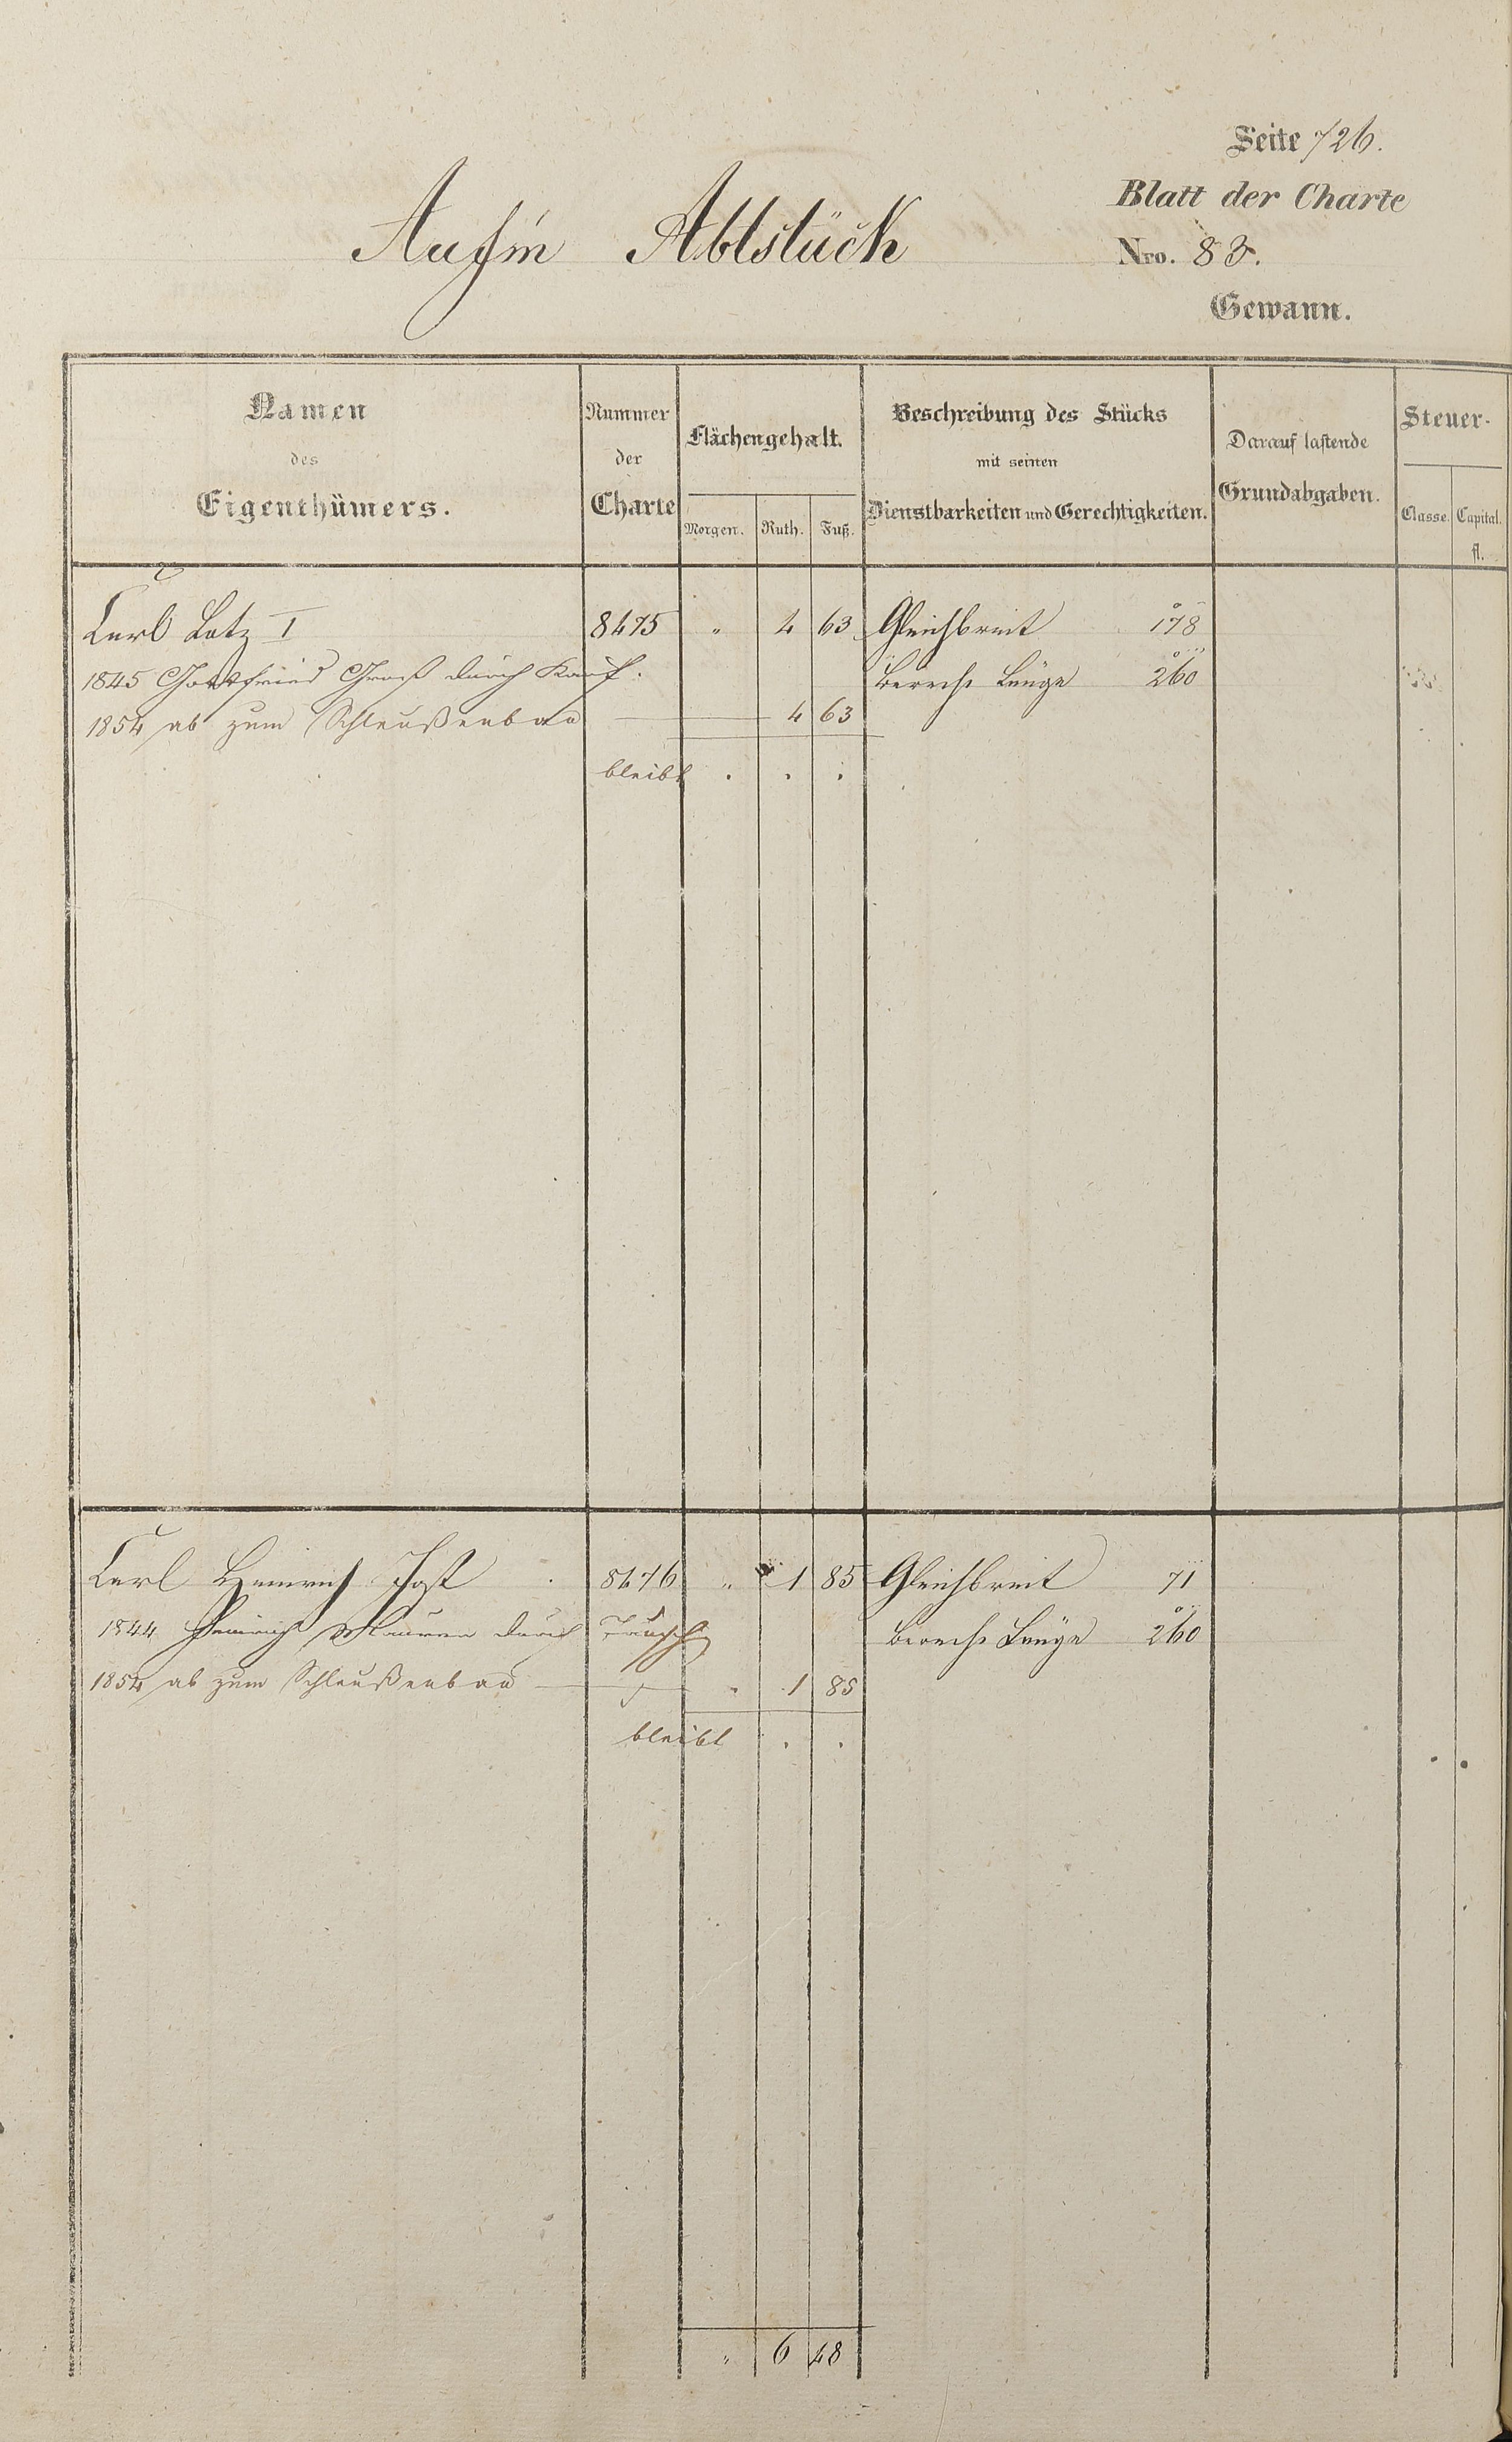 Seite 726.
Blatt der Charte
Aufm Abtstück
Nro. 83.
Gewann.
Namen des Eigenthümers.
Nummer der Charte
Flächengehalt.
Morgen. Ruth. Fuß.
Beschreibung des Stücks mit seinen Dienstbarkeiten und Gerechtigkeiten.
Darauf lastende Grundabgaben.
Steuer-
Classe. Capital. fl.
Carl Lotz I 8475 " 4 63 Gleichbreit 178
1845 Gottfried Groß durch Kauf. Berechs Länge 260
1854 ab zum Schleußenbau — 4 63
bleibt . . .
Carl Heinrich Jost 8476 " 1 85 Gleichbreit 71
1844 Heinrich Maurer durch Tausch Berechs Länge 260
1854 ab zum Schleußenbau — " 1 85
bleibt . .
" 6 48